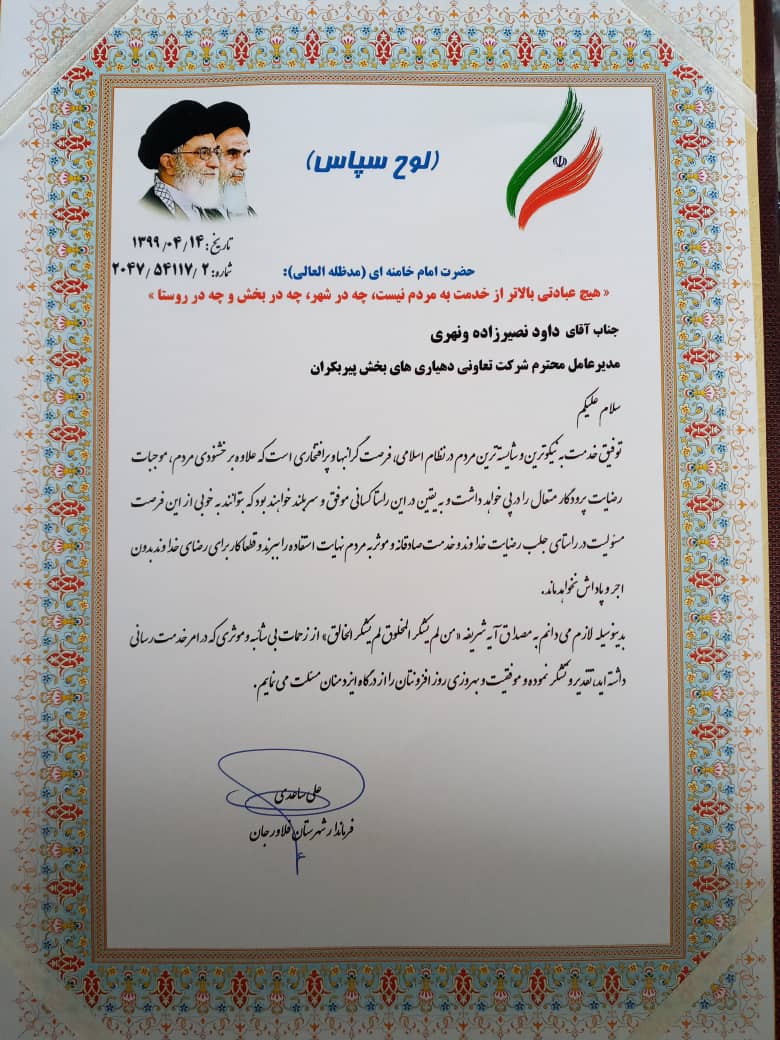 (لوح سپاس)
تاریخ: ۱۳۹۹/۰۴/۱۴
شماره: ۲۰۴۷/۵۴۱۱۷/۲
حضرت امام خامنه ای (مدظله العالی):
« هیچ عبادتی بالاتر از خدمت به مردم نیست، چه در شهر، چه در بخش و چه در روستا »
جناب آقای داود نصیرزاده ونهری
مدیرعامل محترم شرکت تعاونی دهیاری های بخش پیربکران
سلام علیکم
توفیق خدمت به نیکوترین و شایسته ترین مردم در نظام اسلامی، فرصت گرانبها و پرافتخاری است که علاوه بر خشنودی مردم، موجبات
رضایت پروردگار متعال را در پی خواهد داشت و به یقین در این راستا کسانی موفق و سربلند خواهند بود که بتوانند به خوبی از این فرصت
مسئولیت در راستای جلب رضایت خداوند و خدمت صادقانه و موثر به مردم نهایت استفاده را ببرند و قطعا کار برای رضای خداوند بدون
اجر و پاداش نخواهد ماند.
بدینوسیله لازم می دانم به مصداق آیه شریفه «من لم یشکر المخلوق لم یشکر الخالق» از زحمات بی شائبه و موثری که در امر خدمت رسانی
داشته اید، تقدیر و تشکر نموده و موفقیت و بهروزی روز افزونتان را از درگاه ایزد منان مسئلت می نمایم.
علی ساعدی
فرماندار شهرستان فلاورجان